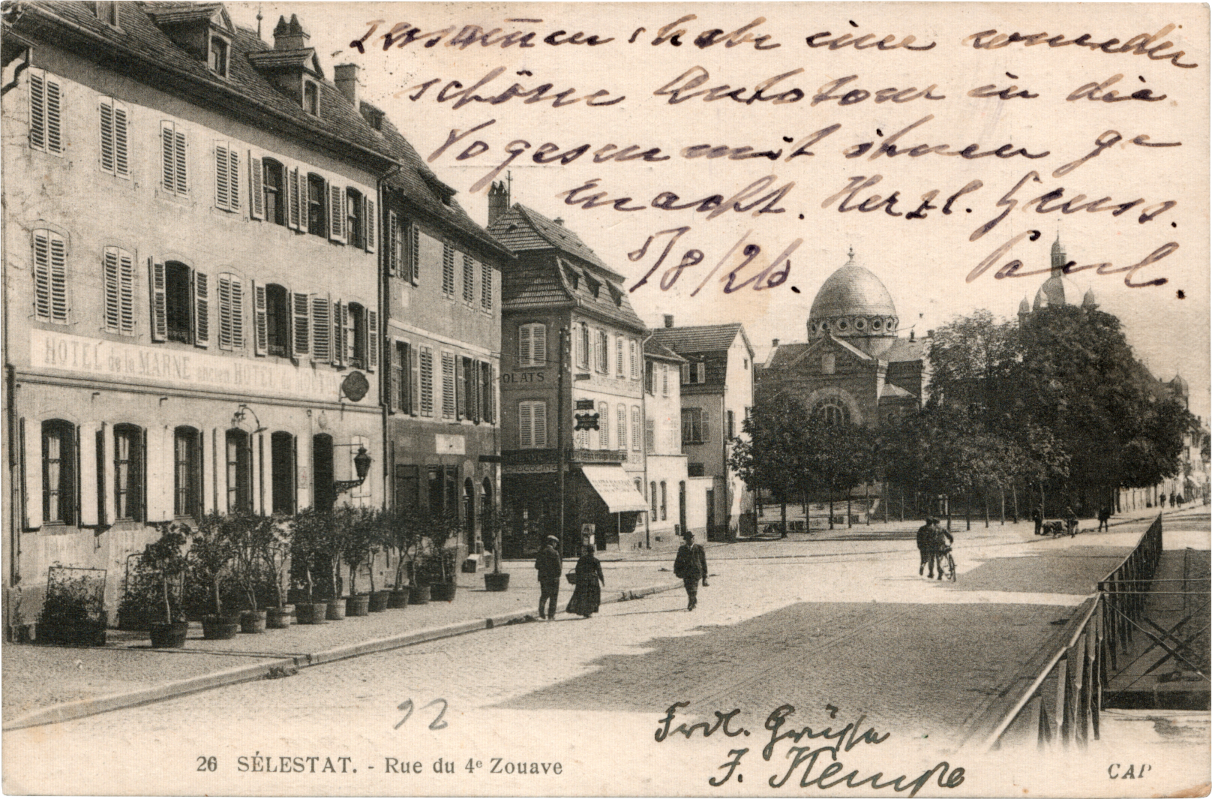 zusammen habe eine wunder
schöne Autotour in die
Vogesen mit ihnen ge
macht. Herzl. Gruss.
5/8/26. Paul.
HOTEL de la MARNE ancien HOTEL
OLATS
92
Frdl. Grüsse
J. Kempe
26 SÉLESTAT. - Rue du 4e Zouave
CAP